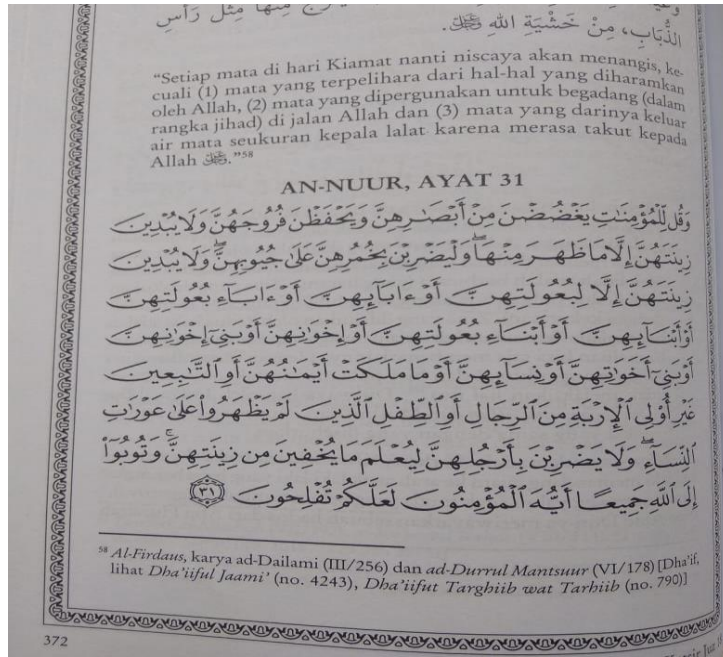 مِنْهَا مِثْلُ رَأْسِ
الذُّبَابِ، مِنْ خَشْيَةِ اللهِ ﷻ.
"Setiap mata di hari Kiamat nanti niscaya akan menangis, ke-
cuali (1) mata yang terpelihara dari hal-hal yang diharamkan
oleh Allah, (2) mata yang dipergunakan untuk begadang (dalam
rangka jihad) di jalan Allah dan (3) mata yang darinya keluar
air mata seukuran kepala lalat karena merasa takut kepada
Allah ﷻ."⁵⁸
AN-NUUR, AYAT 31
وَقُل لِّلْمُؤْمِنَٰتِ يَغْضُضْنَ مِنْ أَبْصَٰرِهِنَّ وَيَحْفَظْنَ فُرُوجَهُنَّ وَلَا يُبْدِينَ
زِينَتَهُنَّ إِلَّا مَا ظَهَرَ مِنْهَا ۖ وَلْيَضْرِبْنَ بِخُمُرِهِنَّ عَلَىٰ جُيُوبِهِنَّ ۖ وَلَا يُبْدِينَ
زِينَتَهُنَّ إِلَّا لِبُعُولَتِهِنَّ أَوْ ءَابَآئِهِنَّ أَوْ ءَابَآءِ بُعُولَتِهِنَّ
أَوْ أَبْنَآئِهِنَّ أَوْ أَبْنَآءِ بُعُولَتِهِنَّ أَوْ إِخْوَٰنِهِنَّ أَوْ بَنِىٓ إِخْوَٰنِهِنَّ
أَوْ بَنِىٓ أَخَوَٰتِهِنَّ أَوْ نِسَآئِهِنَّ أَوْ مَا مَلَكَتْ أَيْمَٰنُهُنَّ أَوِ ٱلتَّٰبِعِينَ
غَيْرِ أُو۟لِى ٱلْإِرْبَةِ مِنَ ٱلرِّجَالِ أَوِ ٱلطِّفْلِ ٱلَّذِينَ لَمْ يَظْهَرُوا۟ عَلَىٰ عَوْرَٰتِ
ٱلنِّسَآءِ ۖ وَلَا يَضْرِبْنَ بِأَرْجُلِهِنَّ لِيُعْلَمَ مَا يُخْفِينَ مِن زِينَتِهِنَّ ۚ وَتُوبُوٓا۟
إِلَى ٱللَّهِ جَمِيعًا أَيُّهَ ٱلْمُؤْمِنُونَ لَعَلَّكُمْ تُفْلِحُونَ ﴿٣١﴾
⁵⁸ Al-Firdaus, karya ad-Dailami (III/256) dan ad-Durrul Mantsuur (VI/178) [Dha'if,
lihat Dha'iiful Jaami' (no. 4243), Dha'iifut Targhiib wat Tarhiib (no. 790)]
372